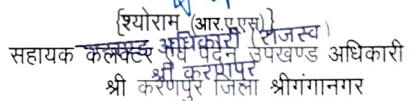 {श्योराम (आर.ए.एस)}
अधिकारी (राजस्व)
सहायक कलक्टर एवं पदेन उपखण्ड अधिकारी
श्री करणपुर
श्री करणपुर जिला श्रीगंगानगर